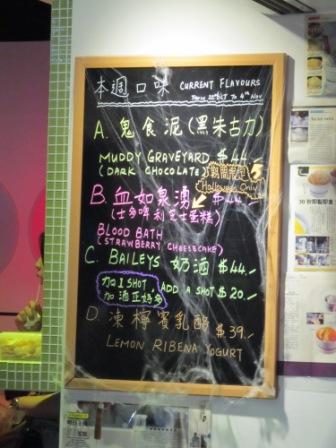 本週口味 CURRENT FLAVOURS
FROM 22ⁿᵈ OCT TO 4ᵗʰ NOV
A. 鬼食泥 (黑朱古力)
MUDDY GRAVEYARD $44
(DARK CHOCOLATE)
Halloween Only
B. 血如泉湧 $44
(士多啤利芝士蛋糕)
BLOOD BATH
(STRAWBERRY CHEESECAKE)
C. BAILEYS 奶酒 $44.-
加1 SHOT,
加酒正好多
ADD A SHOT $20.-
D. 凍檸賓乳酪 $39.-
LEMON RIBENA YOGURT